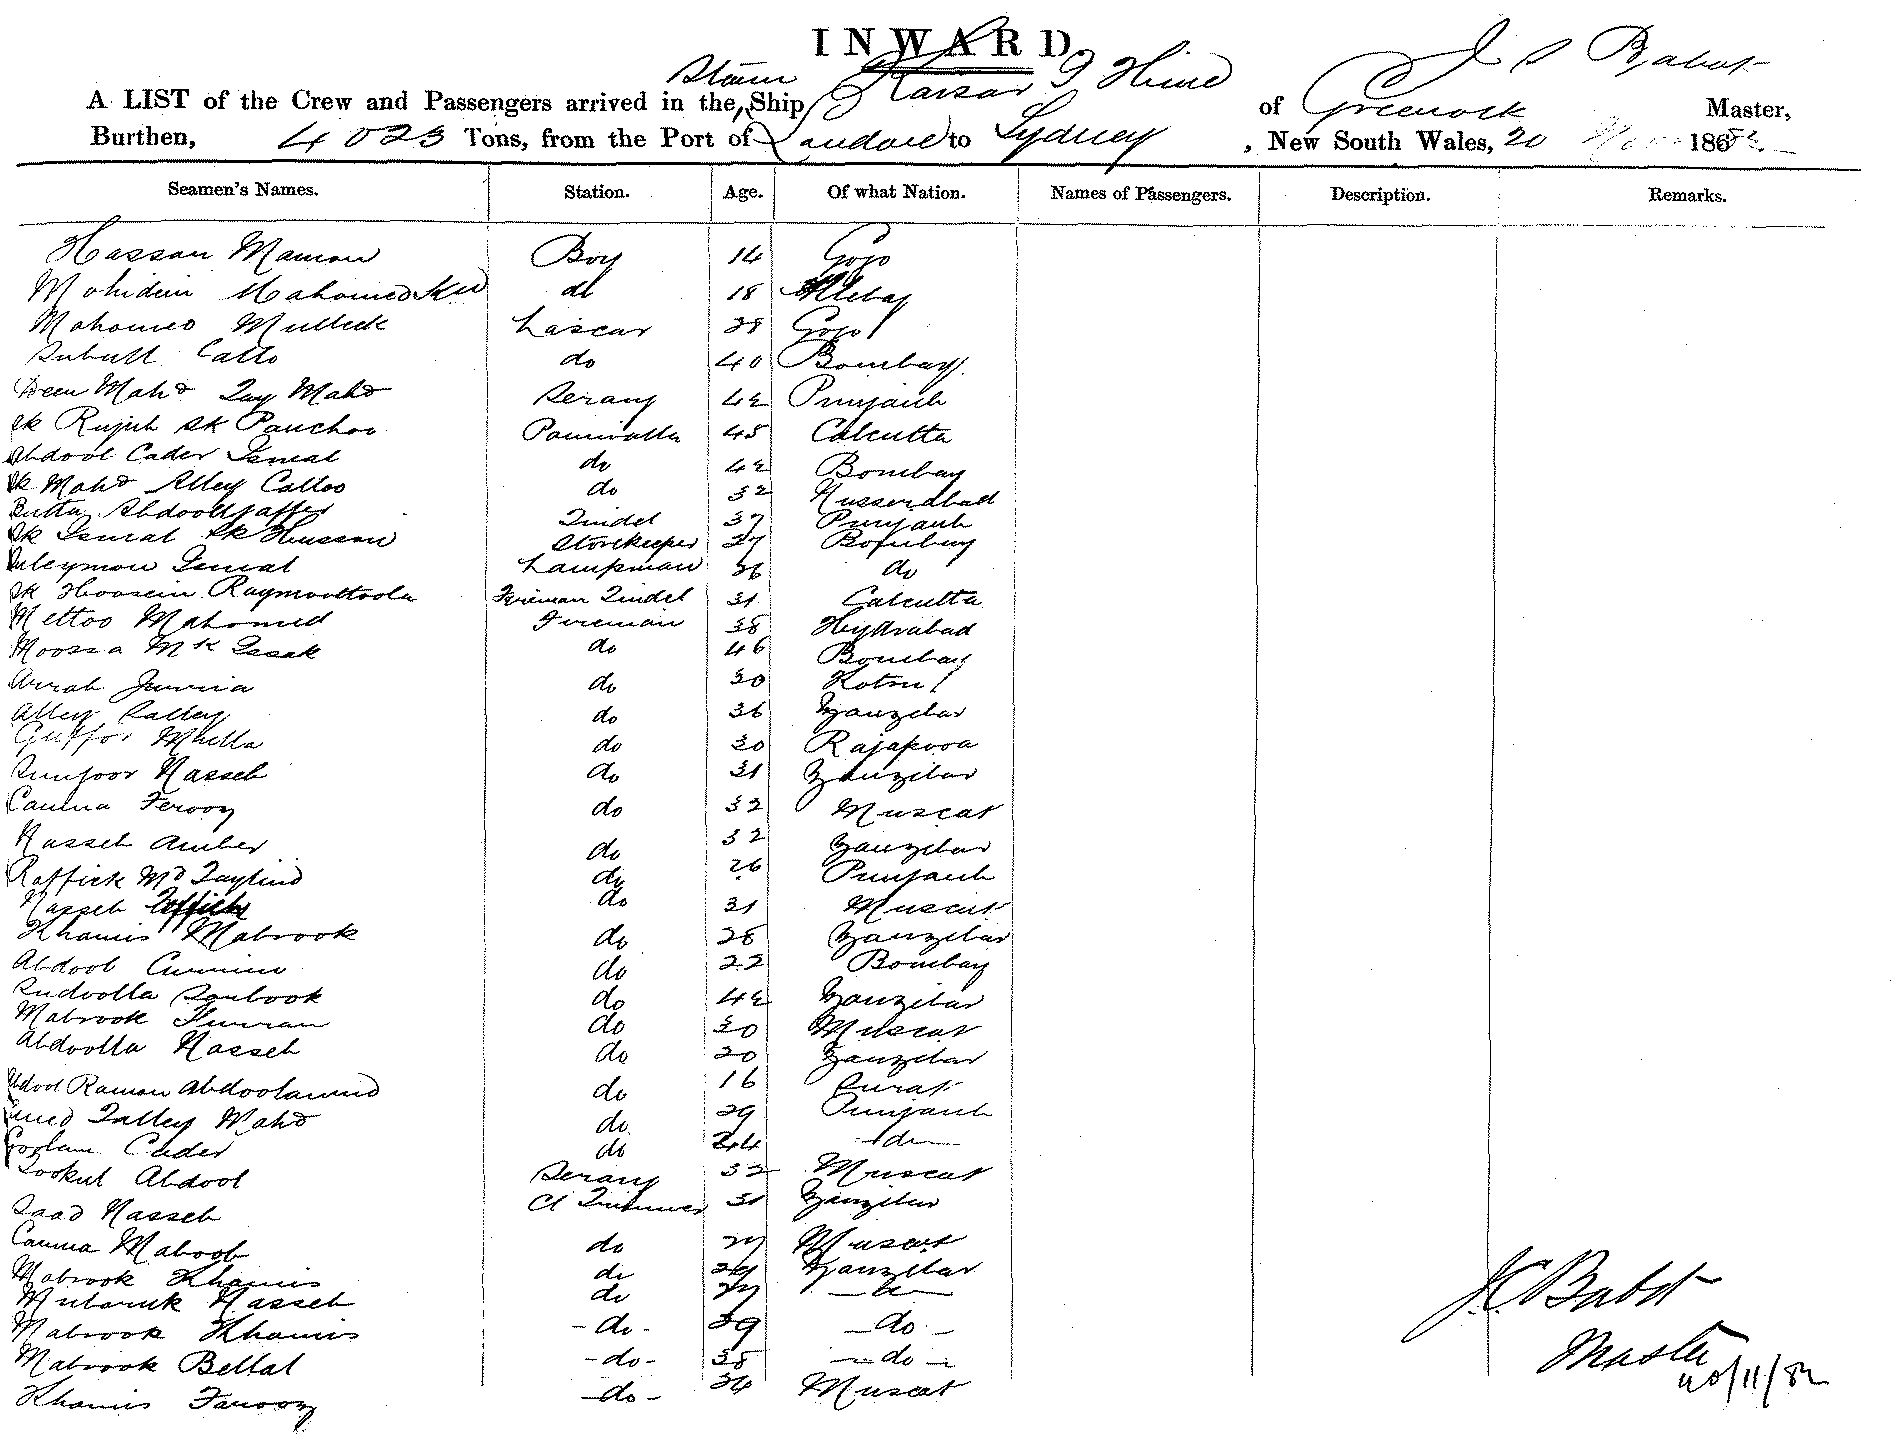 INWARD.
A LIST of the Crew and Passengers arrived in the Steam Ship Kaisar I Hind of Greenock J S Babot Master,
Burthen, 4023 Tons, from the Port of London to Sydney, New South Wales, 20 Nov 1882
Seamen's Names. Station. Age. Of what Nation. Names of Passengers. Description. Remarks.
Hassan Mamon Boy 14 Gogo
Mohidin Mahomed do 18
Mahomed Mulleck Lascar 28 Gogo
Callo do 40 Bombay
Deen Mahd Mahd Serang 42 Punjaub
Sk Rujub Sk Panchoo Paniwalla 45 Calcutta
Abdool Cader Ismal do 42 Bombay
Sk Mahd Alley Calloo do 32 Nusserabad
Butta Abdool Jaffer Tindel 37 Punjaub
Sk Ismal Sk Husson Storekeeper 37 Bombay
Suleymon Ismal Lampman 36 do
Sk Hoosein Raymoottoola Fireman Tindel 31 Calcutta
Mettoo Mahomed Fireman 38 Hydrabad
Moosa Mk Issak do 46 Bombay
Arrab Jumma do 30
Alley Salley do 36 Zanzibar
Guffor Mhulla do 30 Rajapora
Sunjoor Nasseb do 31 Zanzibar
Camma Ferooz do 32 Muscat
Nasseb Amber do 32 Zanzibar
Raffick Md do 26 Punjaub
Nasseb do 31 Muscat
Khamis Mabrook do 28 Zanzibar
Abdool Currim do 22 Bombay
Sudoolla Sonbook do 42 Zanzibar
Mabrook do 30 Muscat
Abdoolla Nasseb do 20 Zanzibar
Abdool Raman Abdoolamid do 16 Surat
Talley Mahd do 29 Punjaub
Goolam Cader do 24 do
Abdool Serang 32 Muscat
Saad Nasseb Cl Trimmer 31 Zanzibar
Camma Maboob do 27 Muscat
Mabrook Khamis do 29 Zanzibar
Mubaruk Nasseb do 27 do
Mabrook Khamis do 29 do
Mabrook Bellal do 38 do
Khamis Farooz do 34 Muscat
J.S. Babot
Master
20/11/82